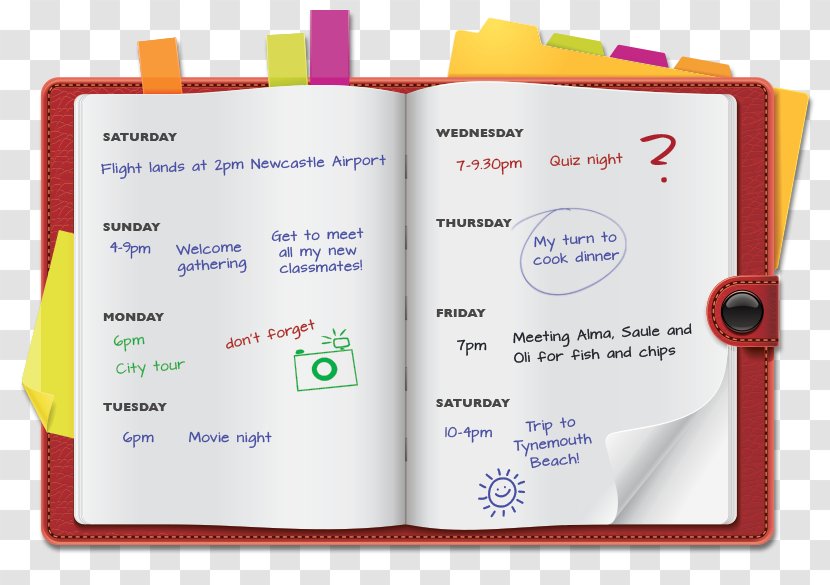 SATURDAY
Flight lands at 2pm Newcastle Airport
SUNDAY
4-9pm
Welcome
gathering
Get to meet
all my new
classmates!
MONDAY
6pm
City tour
don't forget
TUESDAY
6pm Movie night
WEDNESDAY
7-9.30pm Quiz night ?
THURSDAY
My turn to
cook dinner
FRIDAY
7pm
Meeting Alma, Saule and
Oli for fish and chips
SATURDAY
10-4pm
Trip to
Tynemouth
Beach!